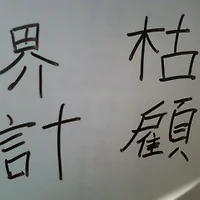 枯顧
界計